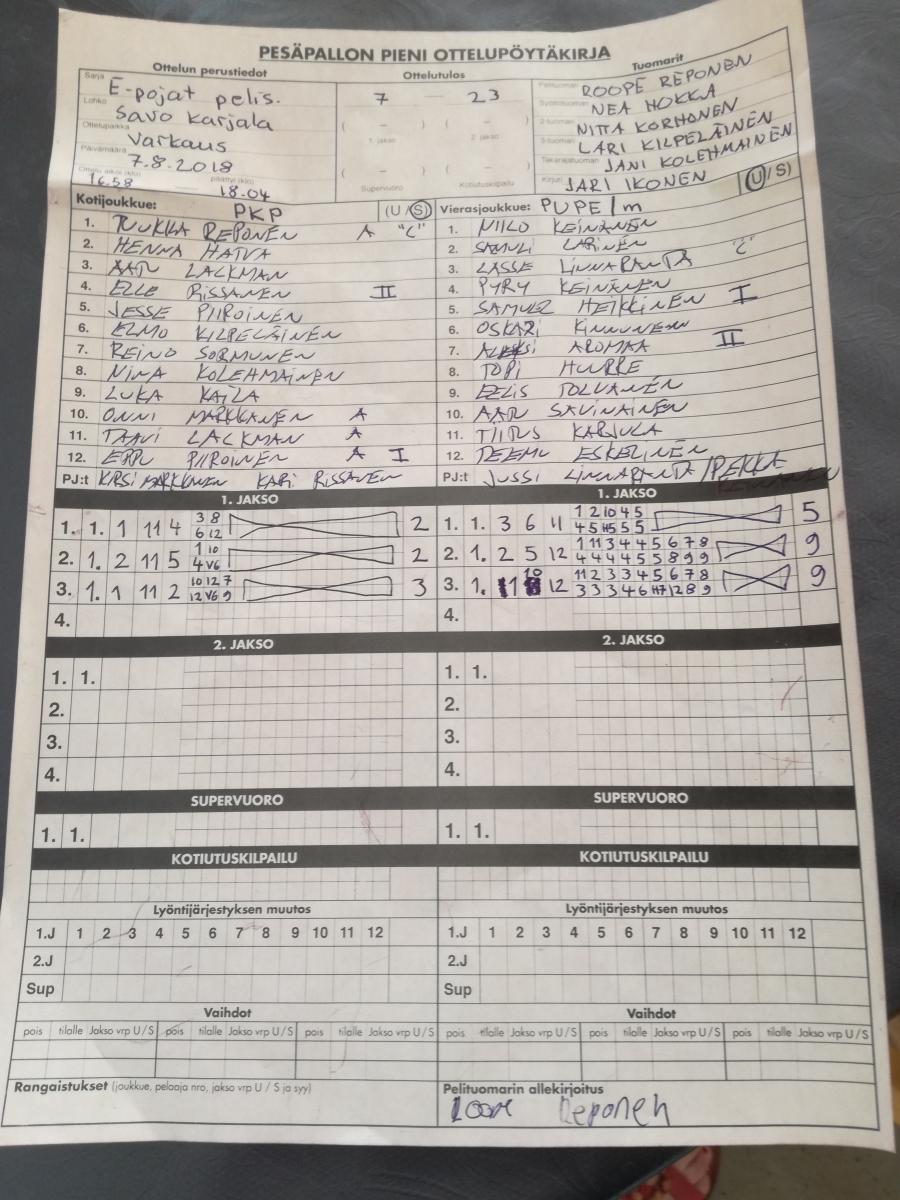 PESÄPALLON PIENI OTTELUPÖYTÄKIRJA
Ottelun perustiedot
Ottelutulos
Tuomarit
Sarja E-pojat pelis.
Lohko Savo Karjala
Ottelupaikka Varkaus
Päivämäärä 7.8.2018
16.58 — päättyi (klo) 18.04
7 — 23
( – ) ( – )
1. jakso 2. jakso
( – ) ( – )
Supervuoro Kotiutuskilpailu
Pelituomari ROOPE REPONEN
NEA HOKKA
2-tuomari NIITA KORHONEN
3-tuomari LARI KILPELÄINEN
Takarajatuomari JANI KOLEHMAINEN
Kirjuri JARI IKONEN
Kotijoukkue: PKP (U / S)
1. TUUKKA REPONEN A "C"
2. HENNA HATVA
3. AATU LACKMAN
4. ELLE RISSANEN II
5. JESSE PIIROINEN
6. ELMO KILPELÄINEN
7. REINO SORMUNEN
8. NINA KOLEHMAINEN
9. LUKA KAILA
10. ONNI MARKKANEN A
11. TAAVI LACKMAN A
12. EPPU PIIROINEN A I
PJ:t KIRSI MARKKANEN KARI RISSANEN
Vierasjoukkue: PUPE/m (U / S)
1. NIILO KEINÄNEN
2. SAMULI LARINEN "C"
3. LASSE LINNARANTA
4. PYRY KEINÄNEN
5. SAMUEL HEIKKINEN I
6. OSKARI KINNUNEN
7. ALEKSI AROMAA II
8. TOPI HUURRE
9. EELIS TOLVANEN
10. AARO SAVINAINEN
11. TIITUS KARJULA
12. TEEMU ESKELINEN
PJ:t JUSSI LINNARANTA / PEKKA KEINÄNEN
1. JAKSO
1. 1. 1 11 4 3 8 2
6 12
2. 1. 2 11 5 1 10 2
4 V6
3. 1. 1 11 2 10 12 7 3
12 V6 9
4.
1. JAKSO
1. 1. 3 6 11 1 2 10 4 5 5
4 5 H5 5 5
2. 1. 2 5 12 1 11 3 4 4 5 6 7 8 9
4 4 4 4 5 5 8 9 9
3. 1. 1 10 12 11 2 3 3 4 5 6 7 8 9
3 3 3 4 6 H7 12 8 9
4.
2. JAKSO
1. 1.
2.
3.
4.
2. JAKSO
1. 1.
2.
3.
4.
SUPERVUORO
1. 1.
SUPERVUORO
1. 1.
KOTIUTUSKILPAILU
KOTIUTUSKILPAILU
Lyöntijärjestyksen muutos
1.J 1 2 3 4 5 6 7 8 9 10 11 12
2.J
Sup
Lyöntijärjestyksen muutos
1.J 1 2 3 4 5 6 7 8 9 10 11 12
2.J
Sup
Vaihdot
pois tilalle Jakso vrp U/S pois tilalle Jakso vrp U/S pois tilalle Jakso vrp U/S
Vaihdot
pois tilalle Jakso vrp U/S pois tilalle Jakso vrp U/S pois tilalle Jakso vrp U/S
Rangaistukset (joukkue, pelaaja nro, jakso vrp U / S ja syy)
Pelituomarin allekirjoitus
Roope Reponen